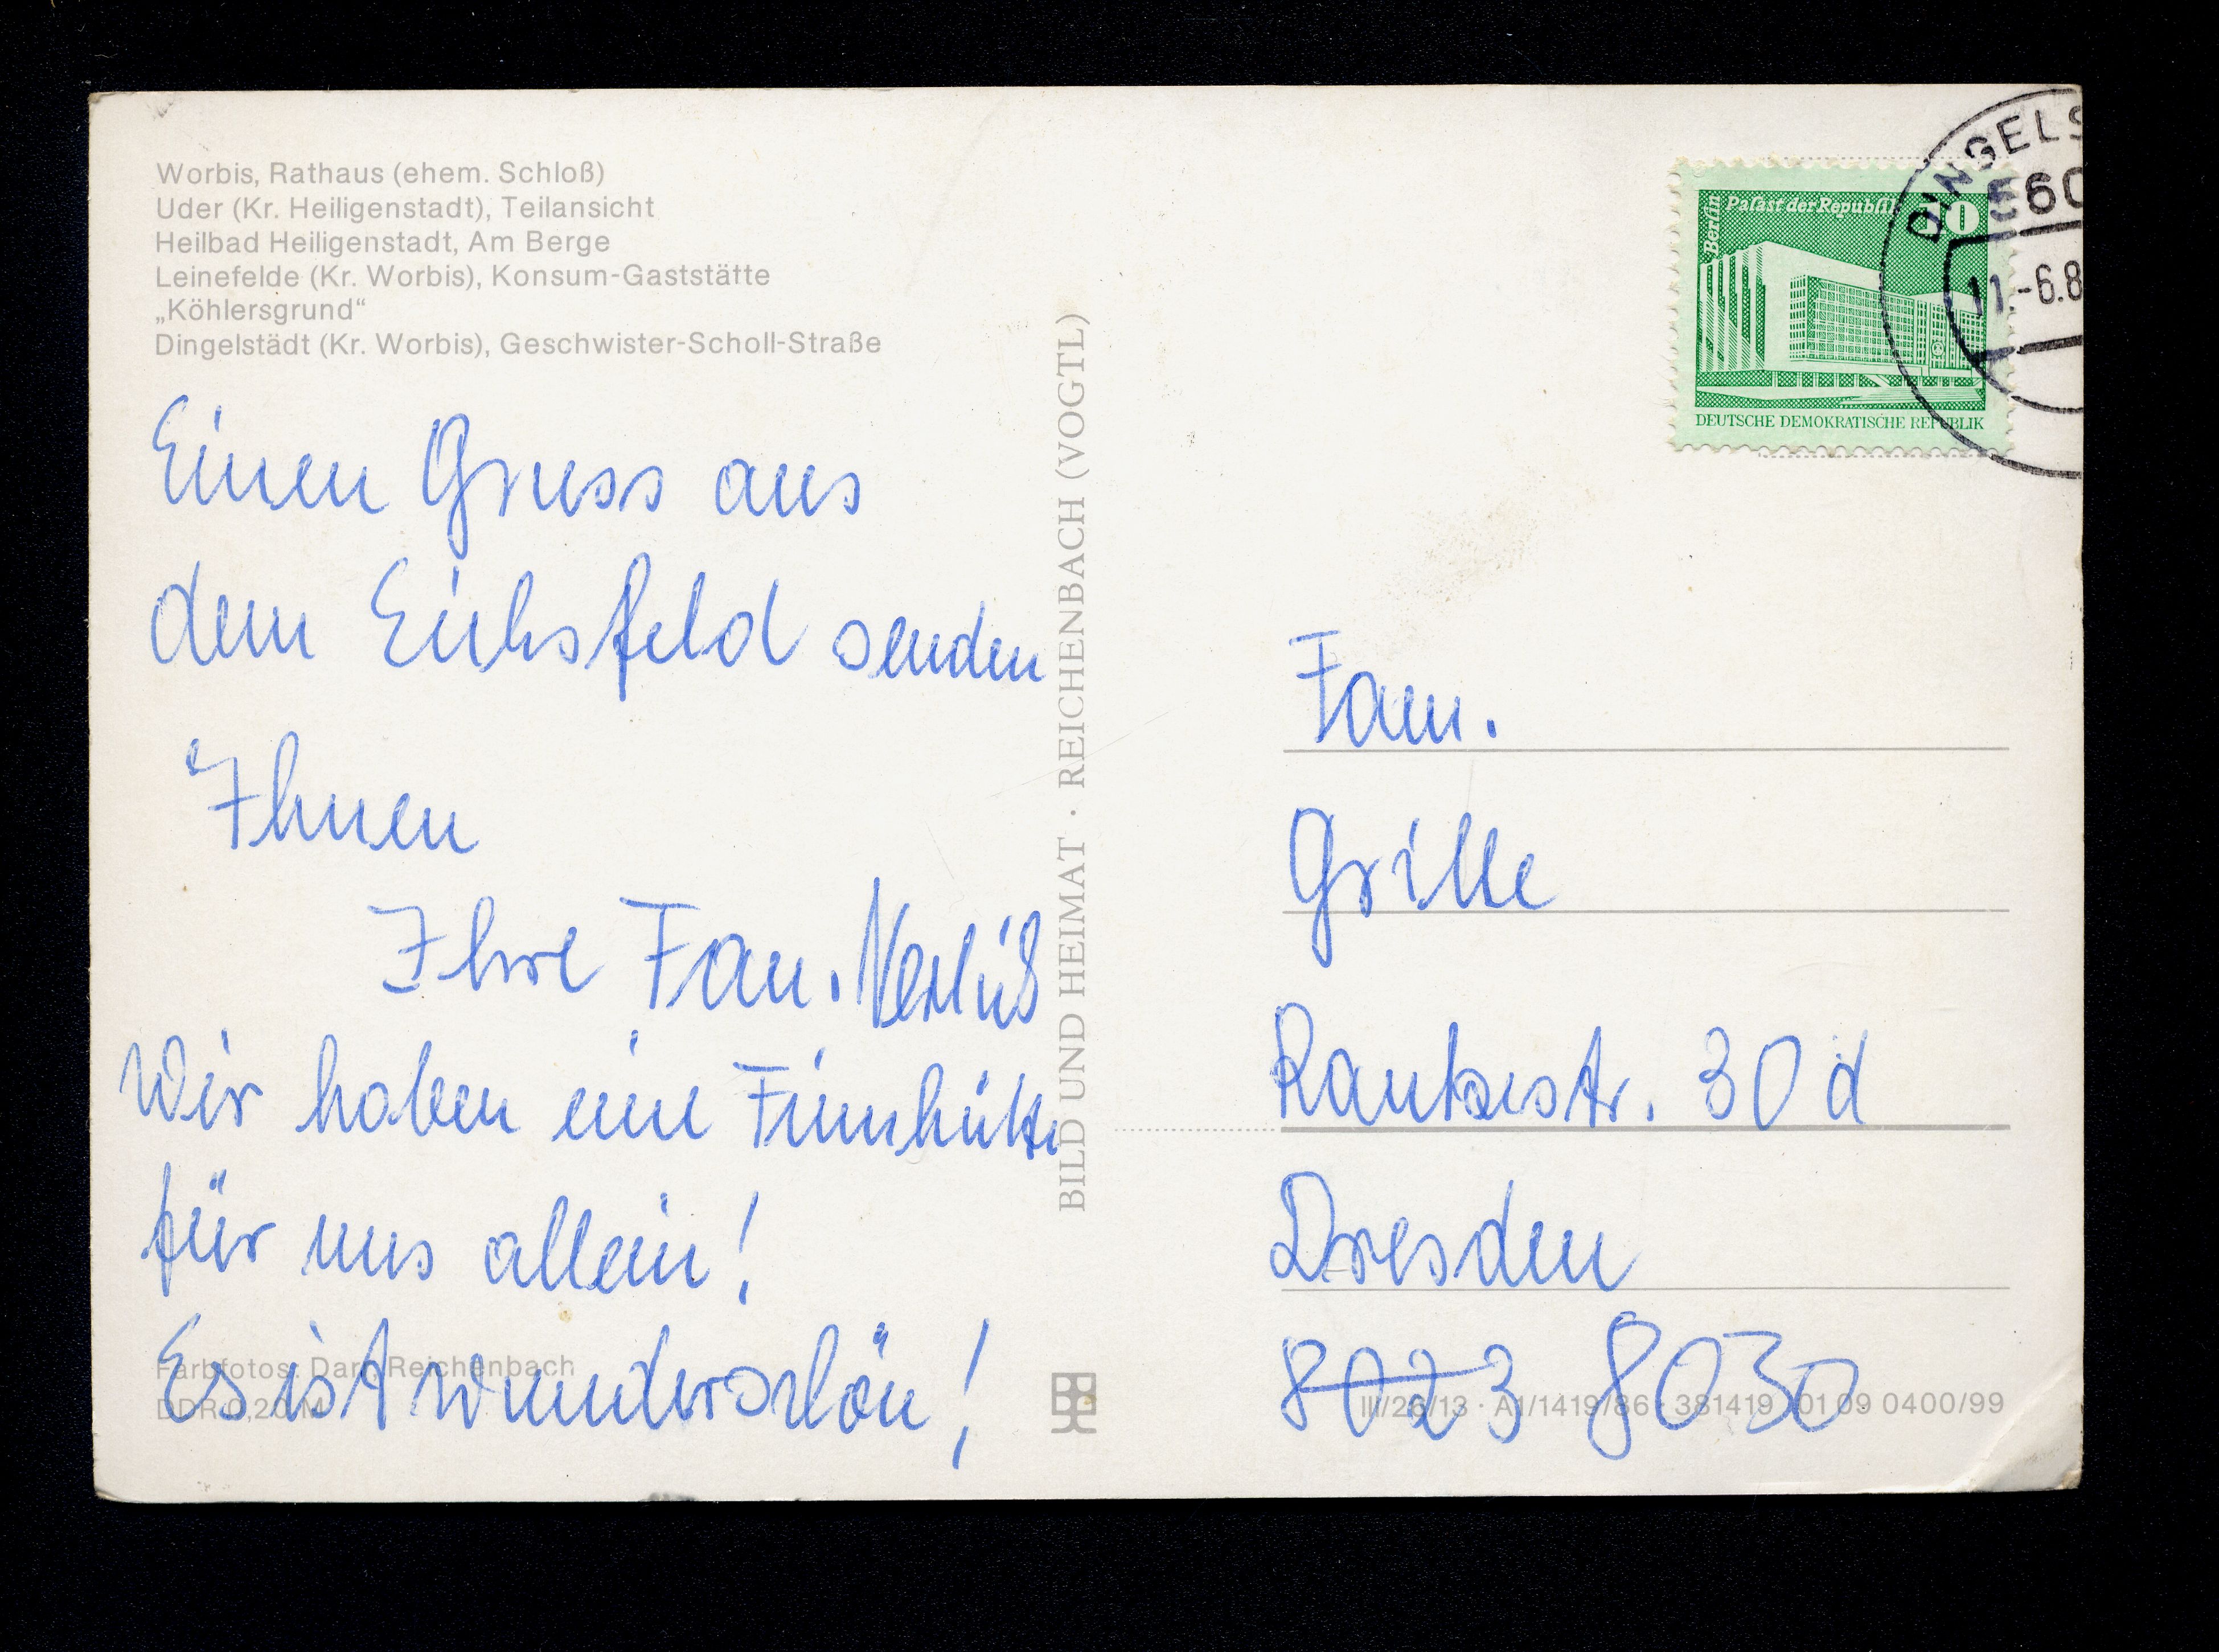 Worbis, Rathaus (ehem. Schloß)
Uder (Kr. Heiligenstadt), Teilansicht
Heilbad Heiligenstadt, Am Berge
Leinefelde (Kr. Worbis), Konsum-Gaststätte
„Köhlersgrund“
Dingelstädt (Kr. Worbis), Geschwister-Scholl-Straße
Einen Gruss aus
dem Eichsfeld senden
Ihnen
Ihre Fam.
Wir haben eine Finnhütte
für uns allein!
Es ist wunderschön!
Farbfotos: Darr, Reichenbach
DDR 0,20 M
BILD UND HEIMAT · REICHENBACH (VOGTL)
Berlin
Palast der Republik
DEUTSCHE DEMOKRATISCHE REPUBLIK
DINGELS
560
-6.8
Fam.
Grille
30 d
Dresden
8023 8030
III/26/13 · A1/1419/86 · 381419 01 09 0400/99